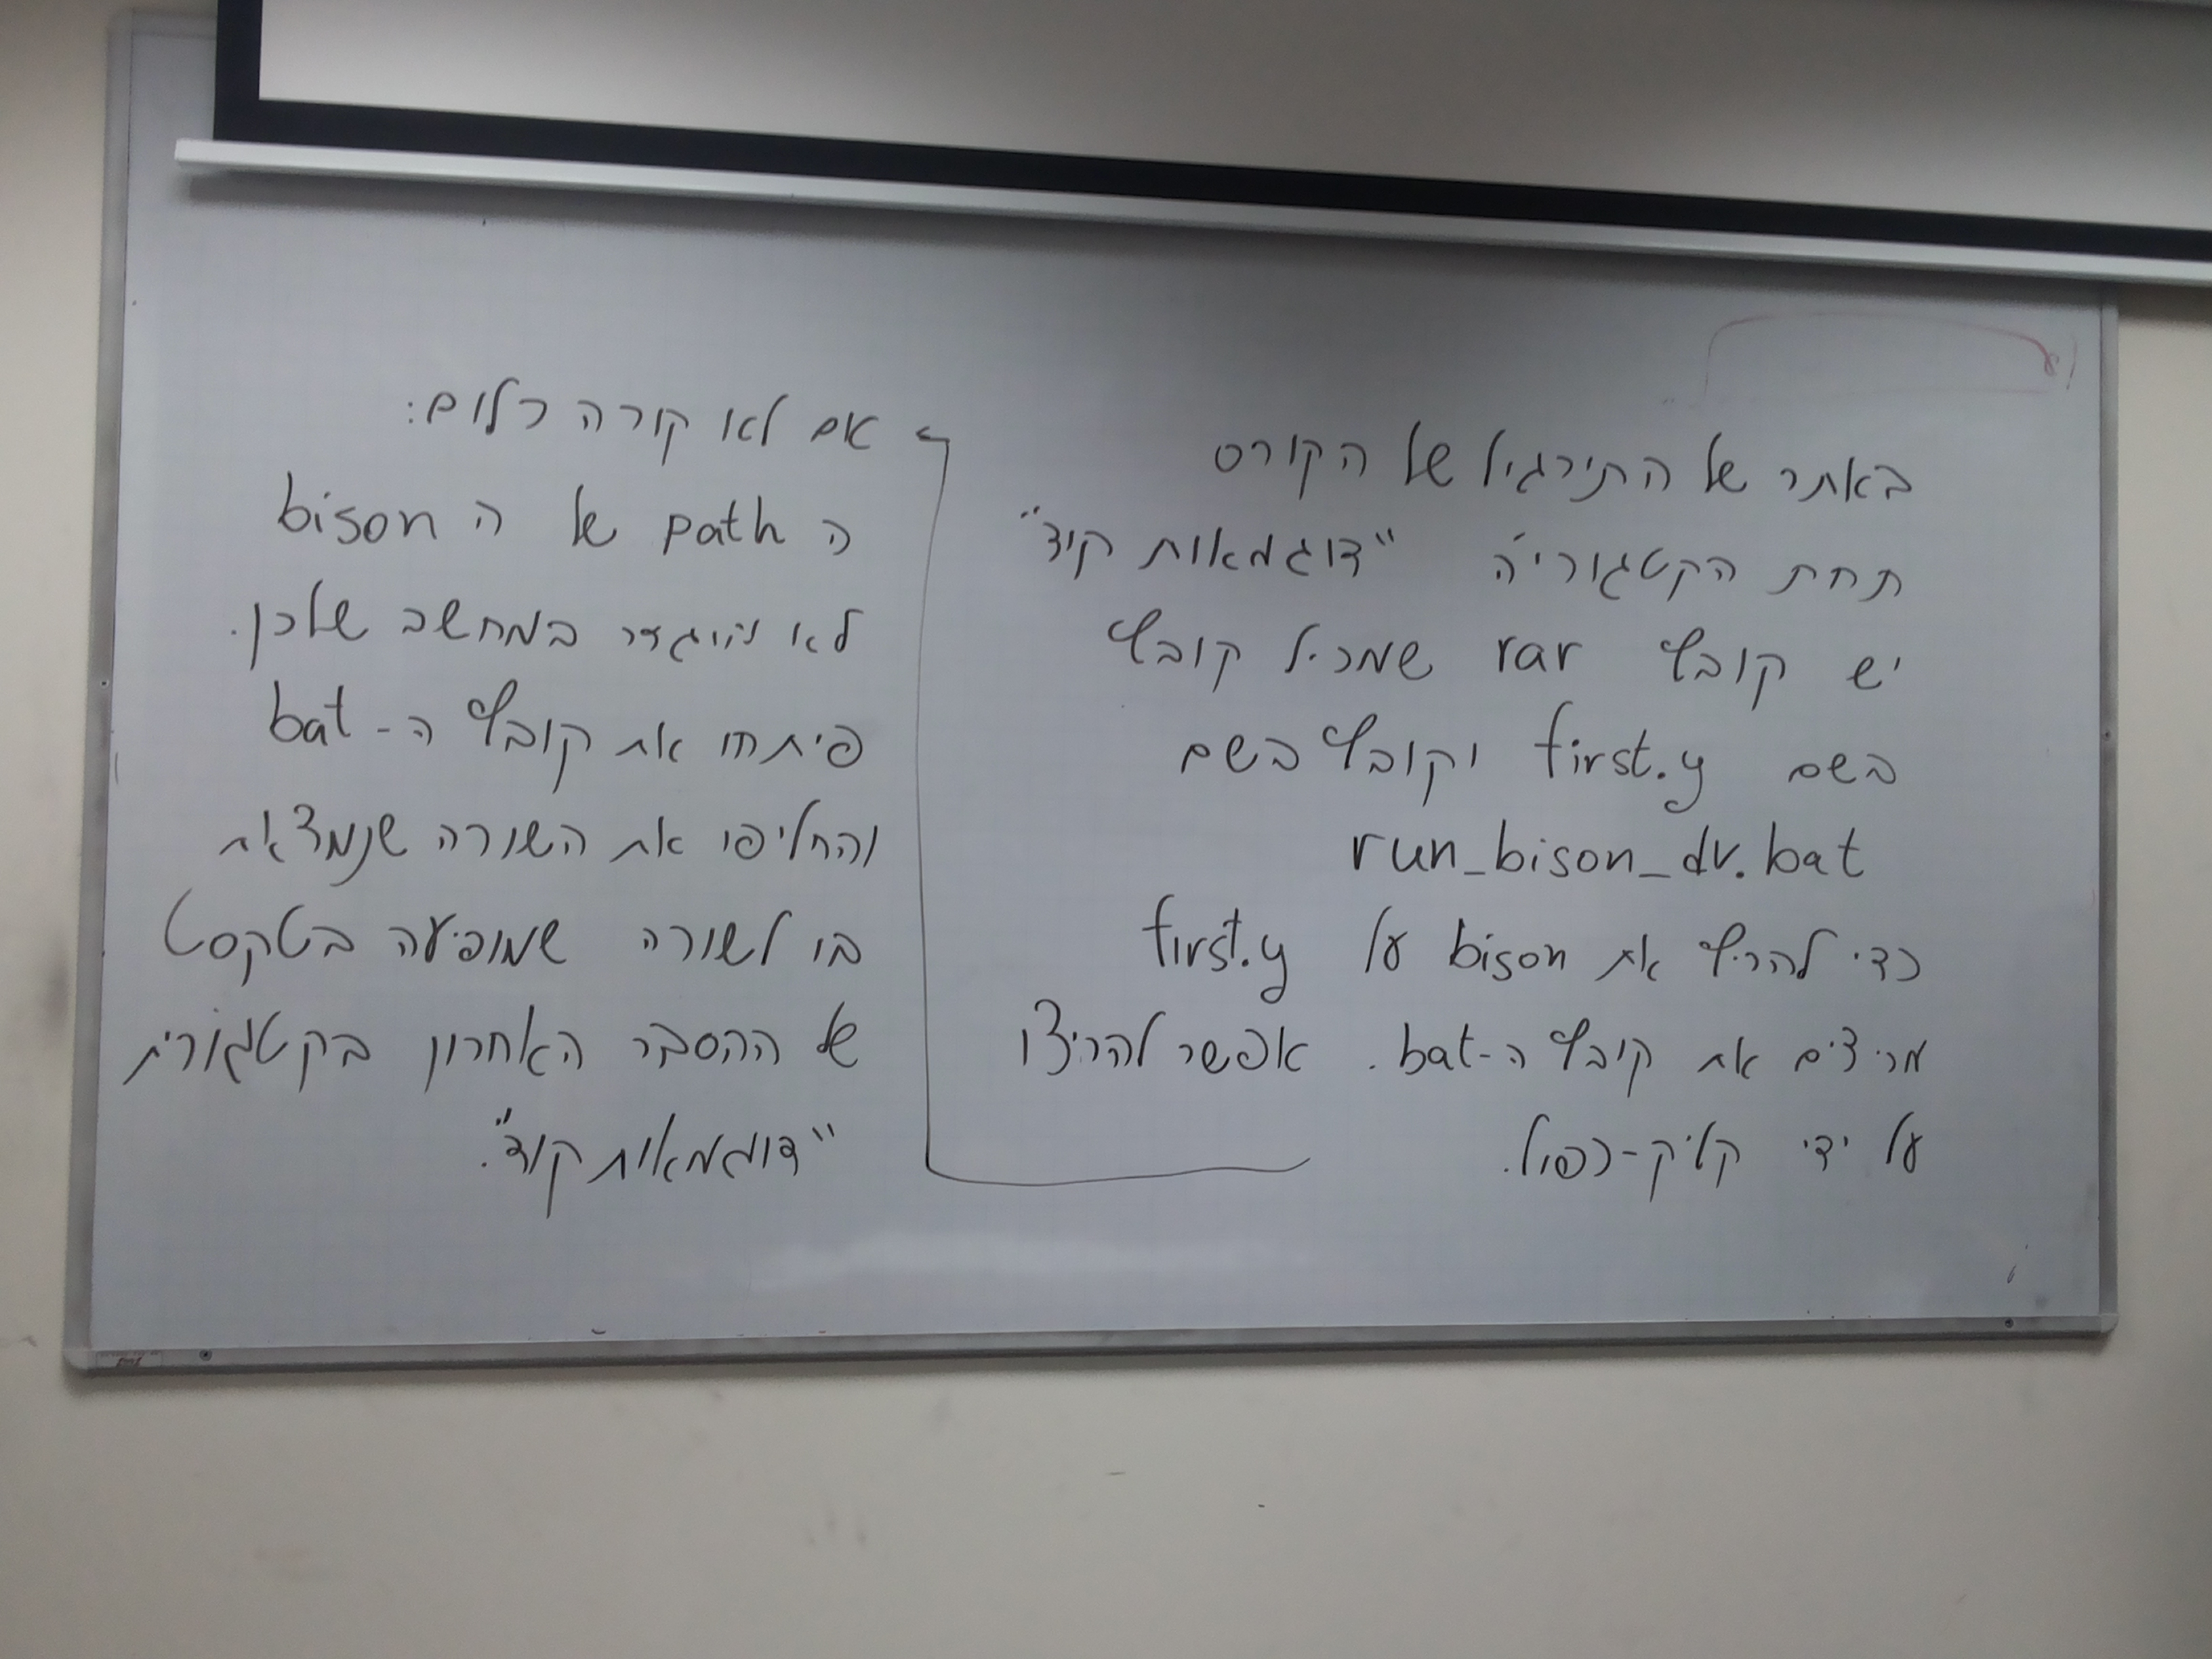 באתר של התירגיל של הקורס
תחת הקטגוריה "דוגמאות קוד"
יש קובץ rar שמכיל קובץ
בשם first.y וקובץ בשם
run_bison_dv.bat
כדי להריץ את bison על first.y
מריצים את קובץ ה-bat. אפשר להריצו
על ידי קליק-כפול.
אם לא קורה כלום:
ה path של ה bison
לא הוגדר במחשב שלכן.
פיתחו את קובץ ה-bat
והחליפו את השורה שנמצאת
בו לשורה שמופיעה בטקסט
של ההסבר האחרון בקטגורית
"דוגמאות קוד".